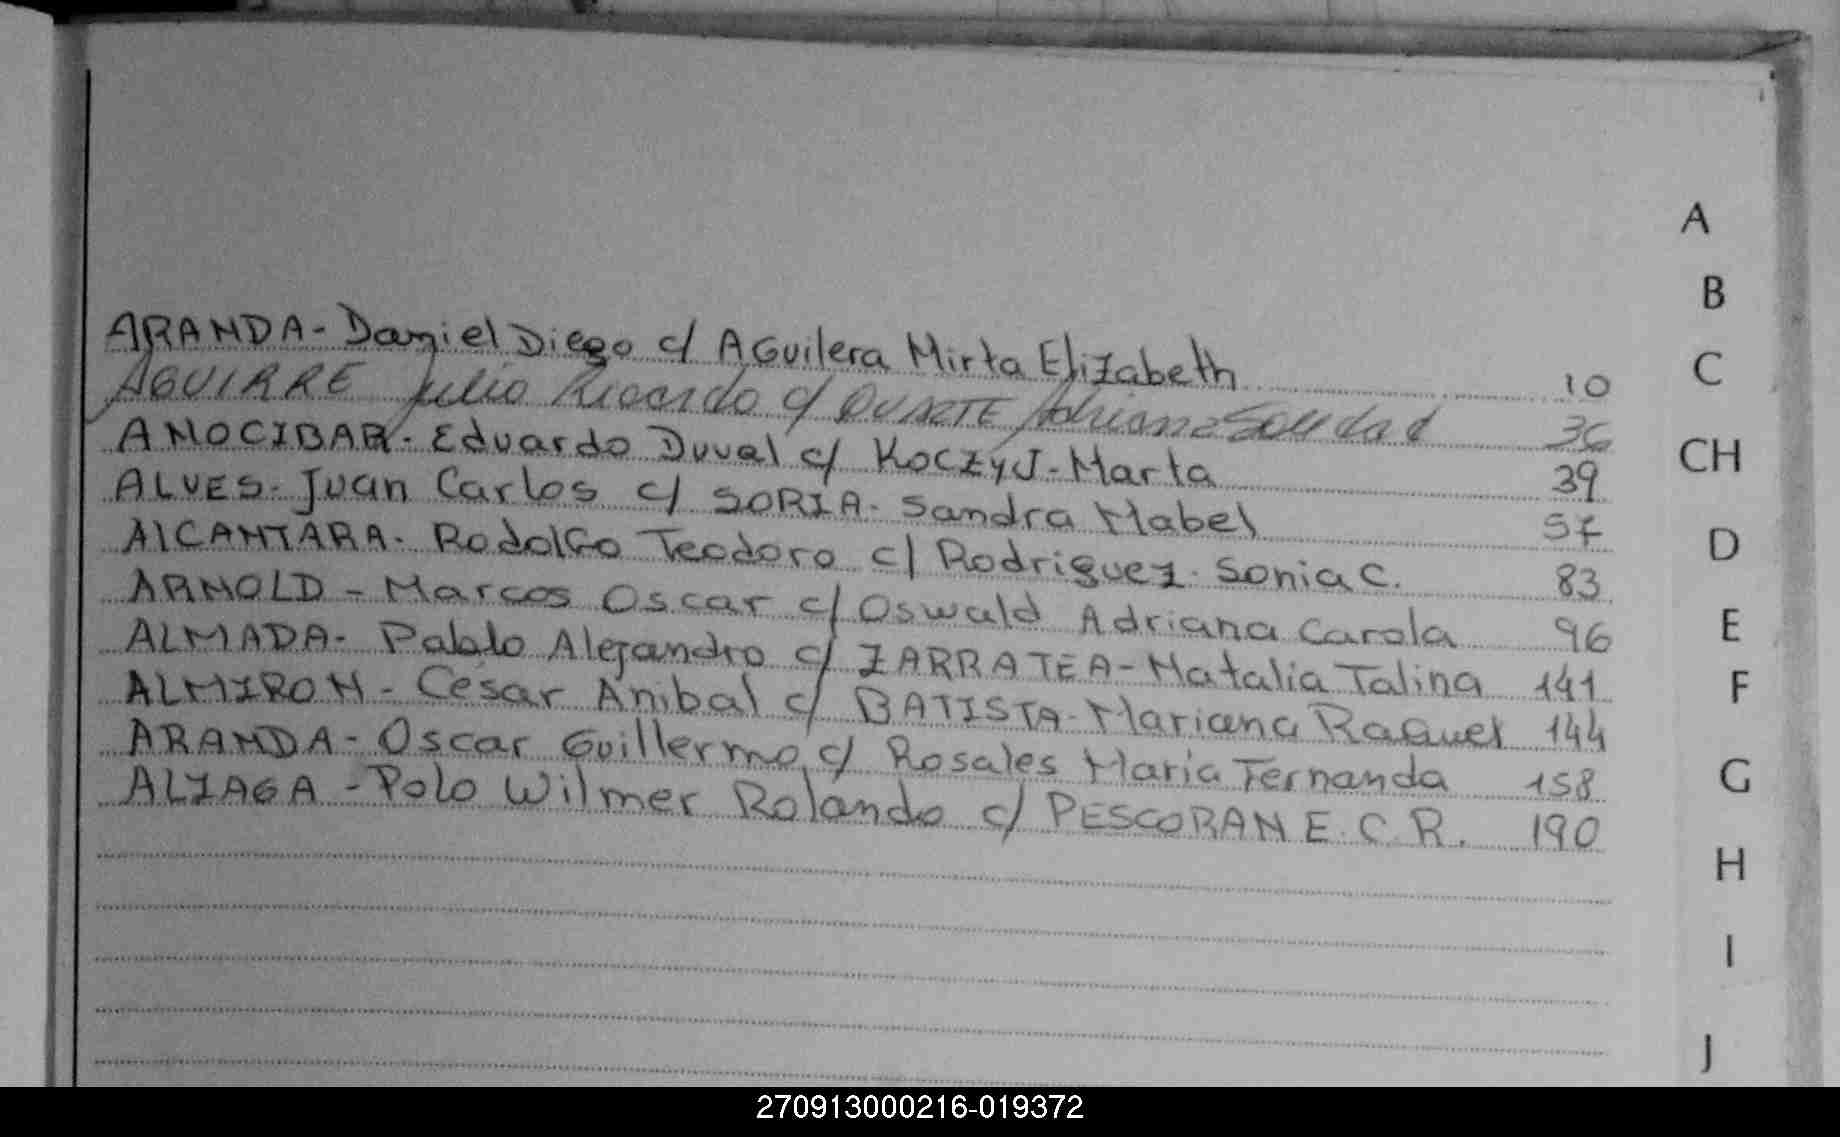 ARANDA - Daniel Diego c/ AGuilera Mirta Elizabeth 10
AGUIRRE Julio Ricardo c/ DUARTE Adriana Soledad 36
ANOCIBAR - Eduardo Duval c/ KOCZYJ - Marta 39
ALVES - Juan Carlos c/ SORIA - Sandra Mabel 57
AlCANTARA - Rodolfo Teodoro c/ Rodriguez - Sonia C. 83
ARNOLD - Marcos Oscar c/ Oswald Adriana Carola 96
ALMADA - Pablo Alejandro c/ ZARRATEA - Natalia Talina 141
ALMIRON - César Anibal c/ BATISTA - Mariana Raquel 144
ARANDA - Oscar Guillermo c/ Rosales Maria Fernanda 158
ALIAGA - Polo Wilmer Rolando c/ PESCORAN E. C. R. 190
A
B
C
CH
D
E
F
G
H
I
J
270913000216-019372